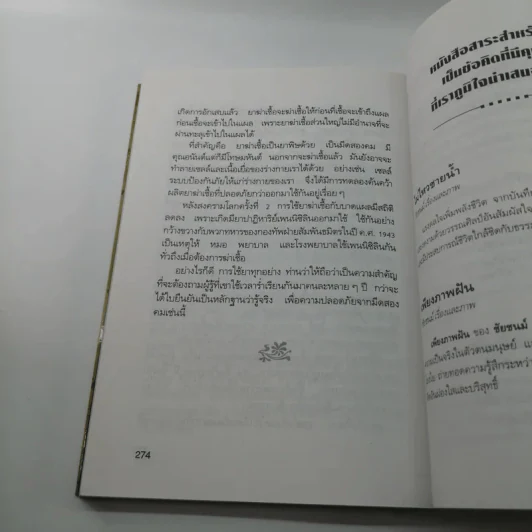 เกิดการอักเสบแล้ว ยาฆ่าเชื้อจะฆ่าเชื้อให้ก่อนที่เชื้อจะเข้าถึงแผล
ก่อนเชื้อจะเข้าไปในแผล เพราะยาฆ่าเชื้อส่วนใหญ่ไม่มีอำนาจที่จะ
ผ่านทะลุเข้าไปในแผลได้
ที่สำคัญคือ ยาฆ่าเชื้อเป็นยาพิษด้วย เป็นมีดสองคม มี
คุณอนันต์แต่ก็มีโทษมหันต์ นอกจากจะฆ่าเชื้อแล้ว มันยังอาจจะ
ทำลายเซลล์และเนื้อเยื่อของร่างกายเราได้ด้วย อย่างเช่น เซลล์
ระบบป้องกันภัยให้แก่ร่างกายของเรา จึงได้มีการทดลองค้นคว้า
ผลิตยาฆ่าเชื้อที่ปลอดภัยกว่าออกมาใช้กันอยู่เรื่อย ๆ
หลังสงครามโลกครั้งที่ 2 การใช้ยาฆ่าเชื้อกับบาดแผลมีสถิติ
ลดลง เพราะเกิดมียาปฏิหาริย์เพนนิซิลินออกมาใช้ ใช้กันอย่าง
กว้างขวางกับพวกทหารของกองทัพฝ่ายสัมพันธมิตรในปี ค.ศ. 1943
เป็นเหตุให้ หมอ พยาบาล และโรงพยาบาลใช้เพนนิซิลินกัน
ทั่วถึงเมื่อต้องการฆ่าเชื้อ
อย่างไรก็ดี การใช้ยาทุกอย่าง ท่านว่าให้ถือว่าเป็นความสำคัญ
ที่จะต้องถามผู้รู้ที่เขาใช้เวลาร่ำเรียนกันมาคนละหลาย ๆ ปี กว่าจะ
ได้ใบยืนยันเป็นหลักฐานว่ารู้จริง เพื่อความปลอดภัยจากมีดสอง
คมเช่นนี้
274
หนังสือสาระสำหรั
เป็นข้อคิดที่มีคุ
ที่เราภูมิใจนำเสน
เพียงภาพฝัน
เพียงภาพฝัน ของ ชัยชนม์